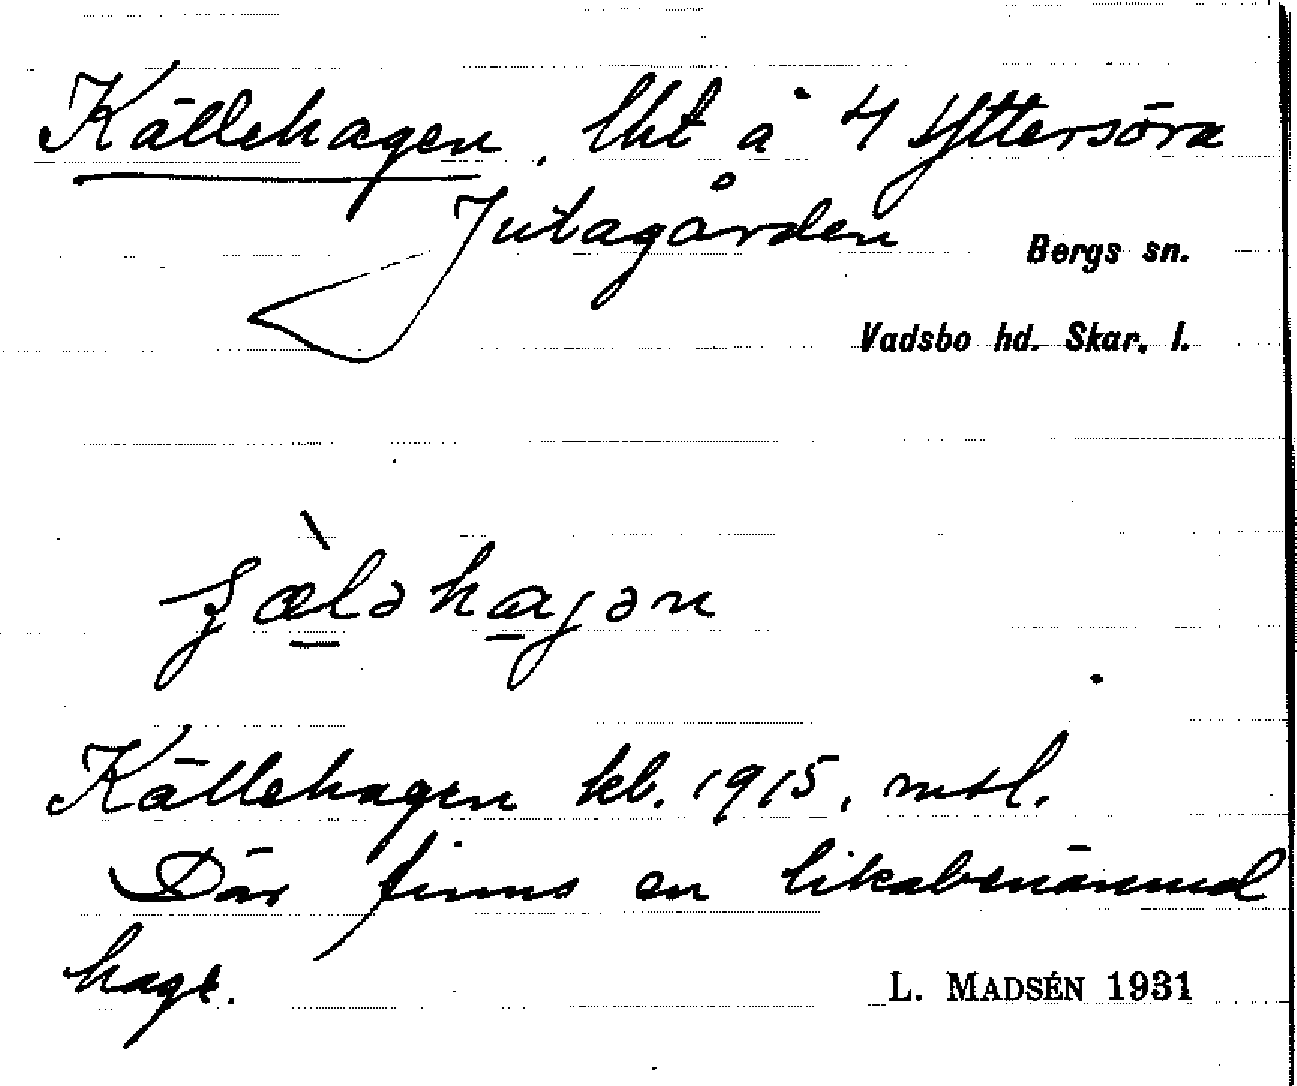 Källehagen, lht å 4 Yttersöra
Jutagården
Bergs sn.
Vadsbo hd. Skar. l.
Källehagen kb. 1915, mtl.
Där finns en likabenämnd
hage.
L. MADSÉN 1931